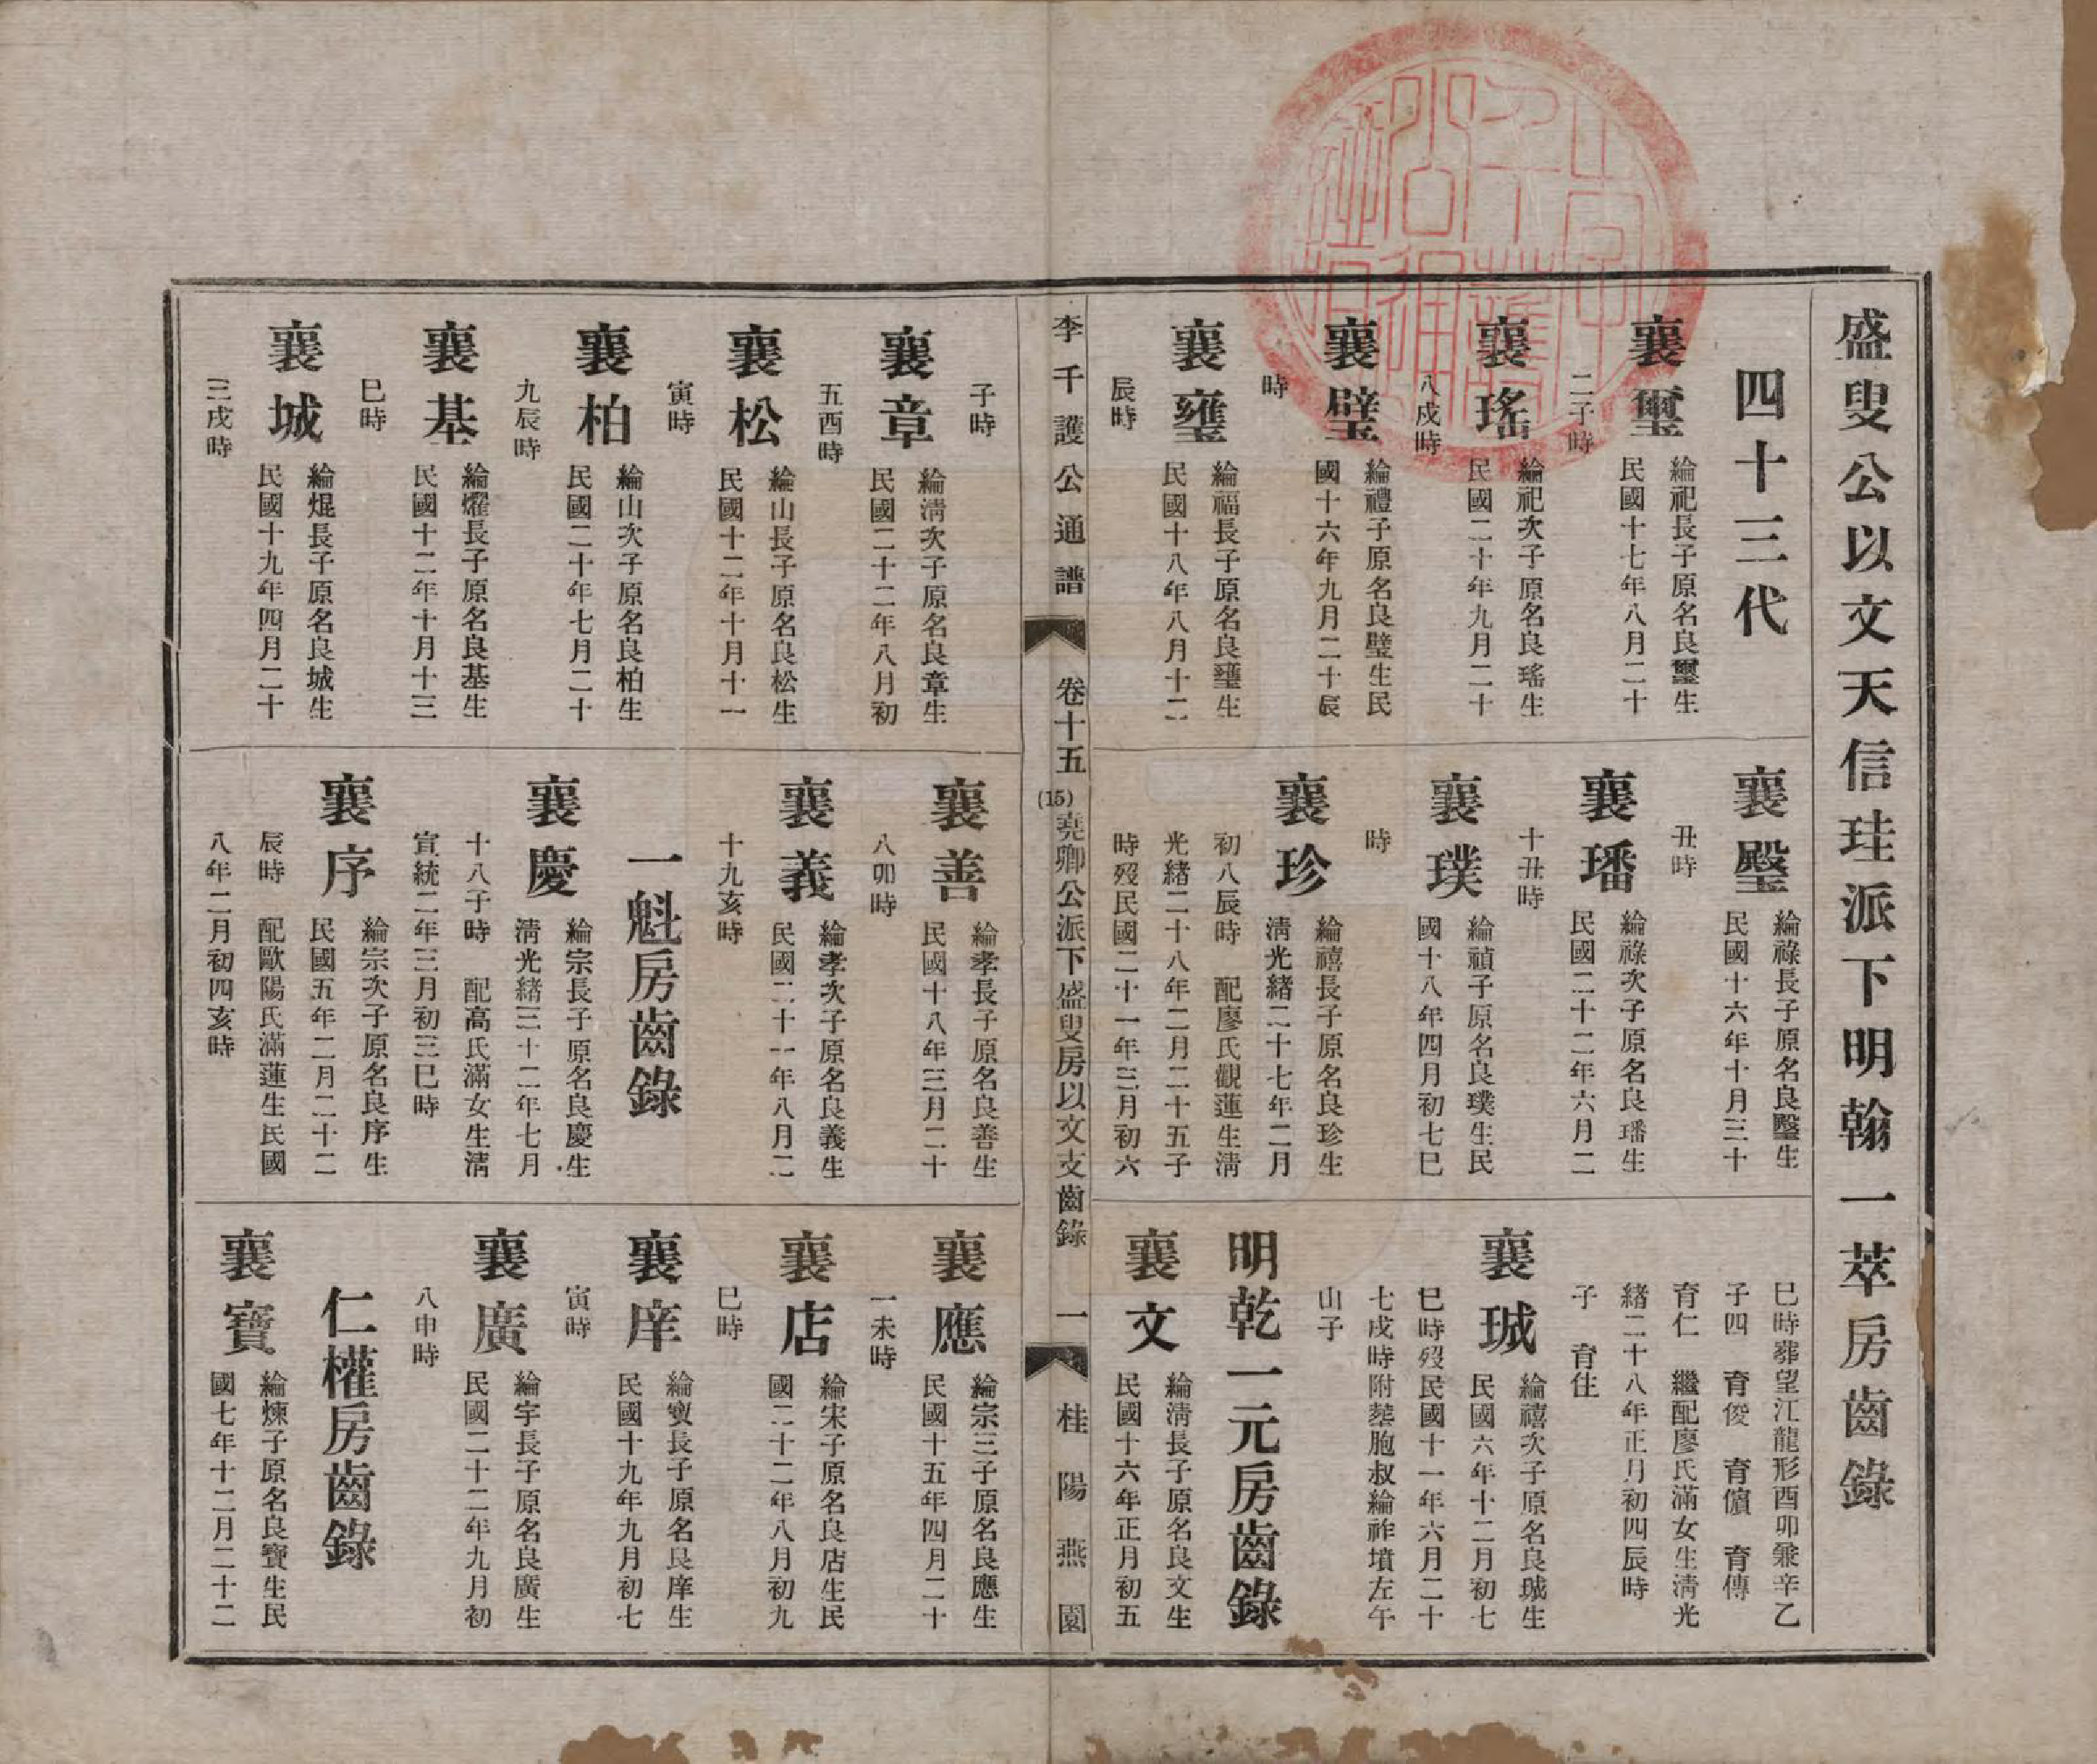 盛叟公以文天信珪派下明翰一萃房齒錄
四十三代
襄璽
綸祀長子原名良璽生
民國十七年八月二十
二子時
襄瑤
綸祀次子原名良瑤生
民國二十年九月二十
八戌時
襄璧
綸禮子原名良璧生民
國十六年九月二十辰
時
襄壅
綸福長子原名良壅生
民國十八年八月十二
辰時
襄瑿
綸祿長子原名良瑿生
民國十六年十月三十
丑時
襄璠
綸祿次子原名良璠生
民國二十二年六月二
十丑時
襄璞
綸禎子原名良璞生民
國十八年四月初七巳
時
襄珍
綸禧長子原名良珍生
清光緒二十七年二月
初八辰時 配廖氏觀蓮生清
光緒二十八年二月二十五子
時歿民國二十一年三月初六
巳時葬望江龍形酉卯兼辛乙
子四 育俊 育儐 育傳
育仁 繼配廖氏滿女生清光
緒二十八年正月初四辰時
子 育住
襄珹
綸禧次子原名良珹生
民國六年十二月初七
巳時歿民國十一年六月二十
七戌時附塟胞叔綸祚墳左午
山子
明乾一元房齒錄
襄文
綸清長子原名良文生
民國十六年正月初五
李千護公通譜 卷十五 (15) 堯卿公派下盛叟房以文支齒錄 一 桂陽燕園
子時
襄章
綸清次子原名良章生
民國二十二年八月初
五酉時
襄松
綸山長子原名良松生
民國十二年十月十一
寅時
襄柏
綸山次子原名良柏生
民國二十年七月二十
九辰時
襄基
綸燿長子原名良基生
民國十二年十月十三
巳時
襄城
綸焜長子原名良城生
民國十九年四月二十
三戌時
襄善
綸孝長子原名良善生
民國十八年三月二十
八卯時
襄義
綸孝次子原名良義生
民國二十一年八月二
十九亥時
一魁房齒錄
襄慶
綸宗長子原名良慶生
清光緒三十二年七月
十八子時 配高氏滿女生清
宣統二年三月初三巳時
襄序
綸宗次子原名良序生
民國五年二月二十二
辰時 配歐陽氏滿蓮生民國
八年二月初四亥時
襄應
綸宗三子原名良應生
民國十五年四月二十
一未時
襄店
綸宋子原名良店生民
國二十二年八月初九
巳時
襄庠
綸寶長子原名良庠生
民國十九年九月初七
寅時
襄廣
綸宇長子原名良廣生
民國二十二年九月初
八申時
仁權房齒錄
襄寶
綸煉子原名良寶生民
國七年十二月二十二